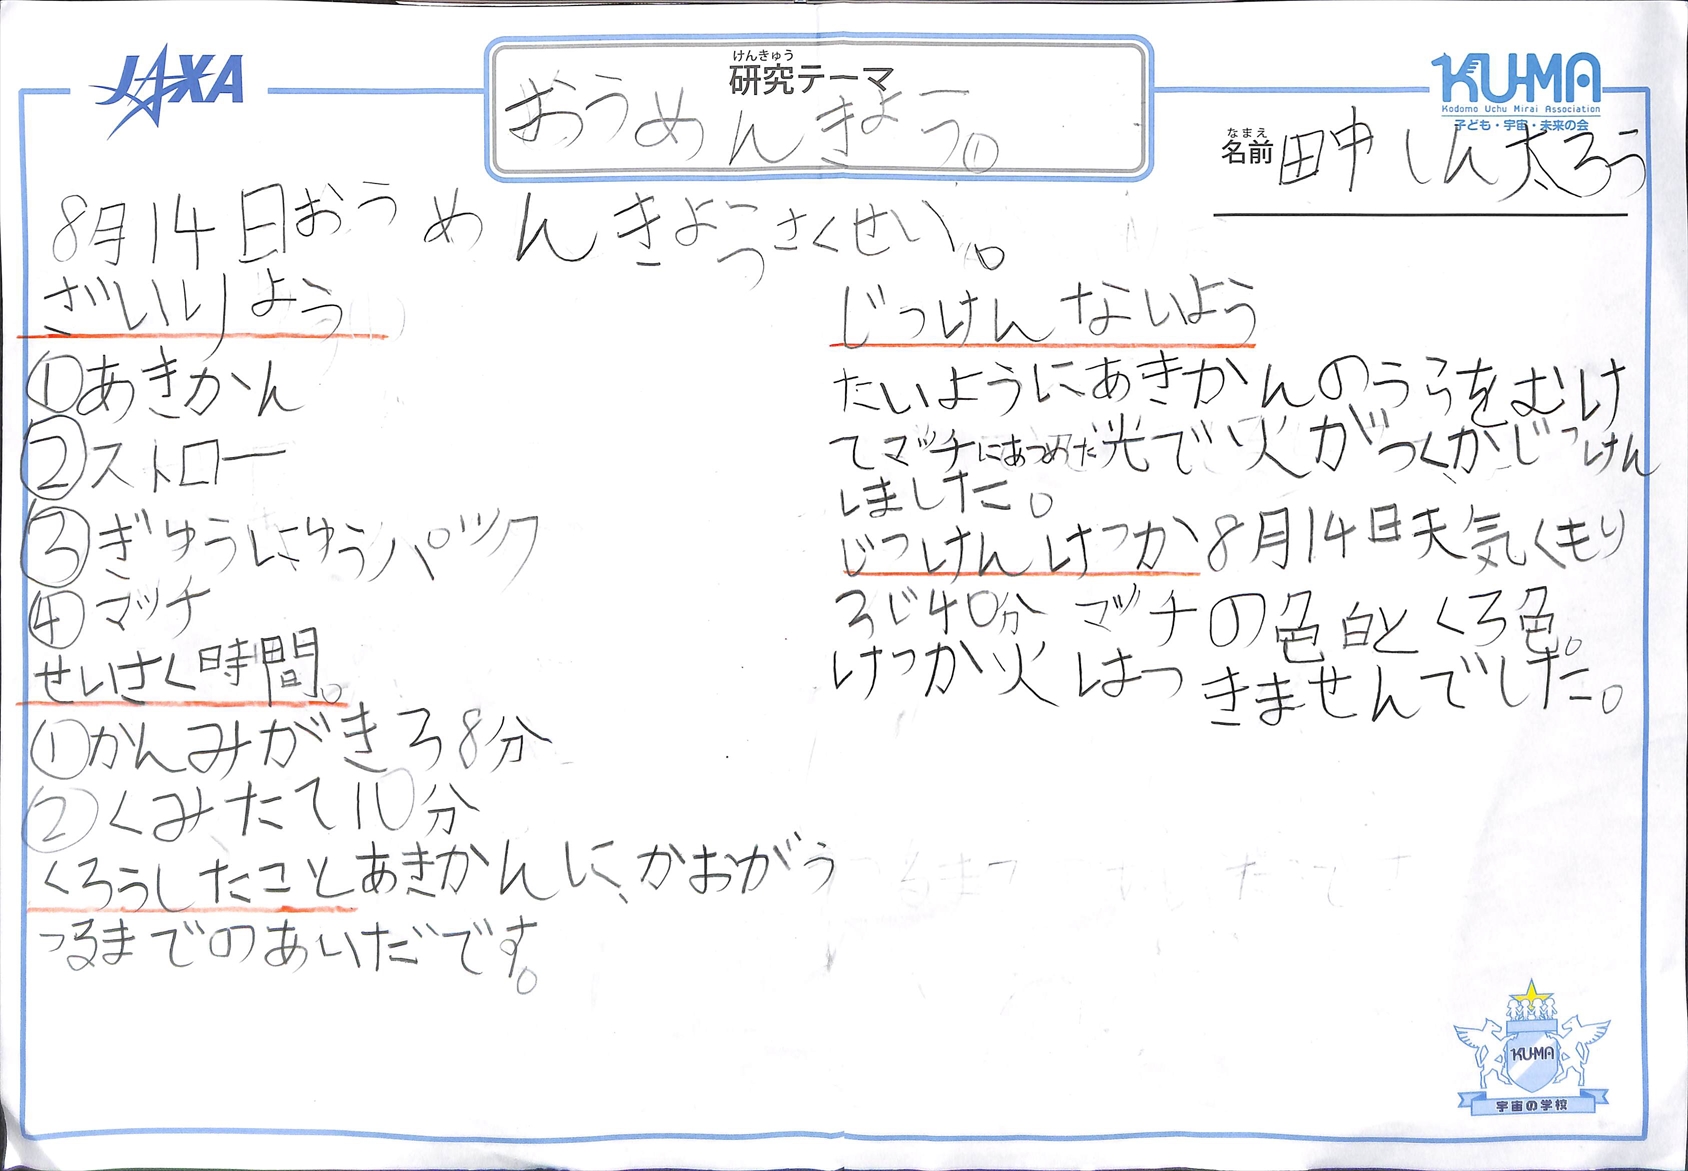 JAXA
けんきゅう
研究テーマ
おうめんきよう。
KU-MA
Kodomo Uchu Mirai Association
子ども・宇宙・未来の会
なまえ
名前 田中しん太ろう
8月14日おうめんきようさくせい。
ざいりよう
①あきかん
②ストロー
③ぎゅうにゅうパック
④マッチ
せいさく時間。
①かんみがきろ8分
②くみたて10分
くろうしたことあきかんに、かおがう
つるまでのあいだです。
じっけんないよう
たいようにあきかんのうらをむけ
てマッチにあつめだ光で火がつくかじっけん
しました。
じっけんけっか8月14日天気くもり
3じ40分 マッチの色白とくろ色。
けっか火はつきませんでした。
KU-MA
宇宙の学校